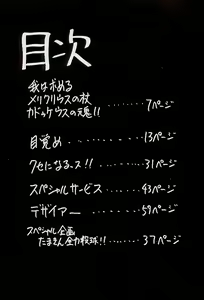 目次
我は求める
メリクリウスの杖
カドゥケウスの元凶!! ・・・・・・7ページ
目覚め ・・・・・・・・・13ページ
クセになるース!! ・・・・・31ページ
スペシャルサービス ・・・・・43ページ
デザイアー ・・・・・・・・59ページ
スペシャル企画
たまきん全力投球!! ・・・・・・37ページ